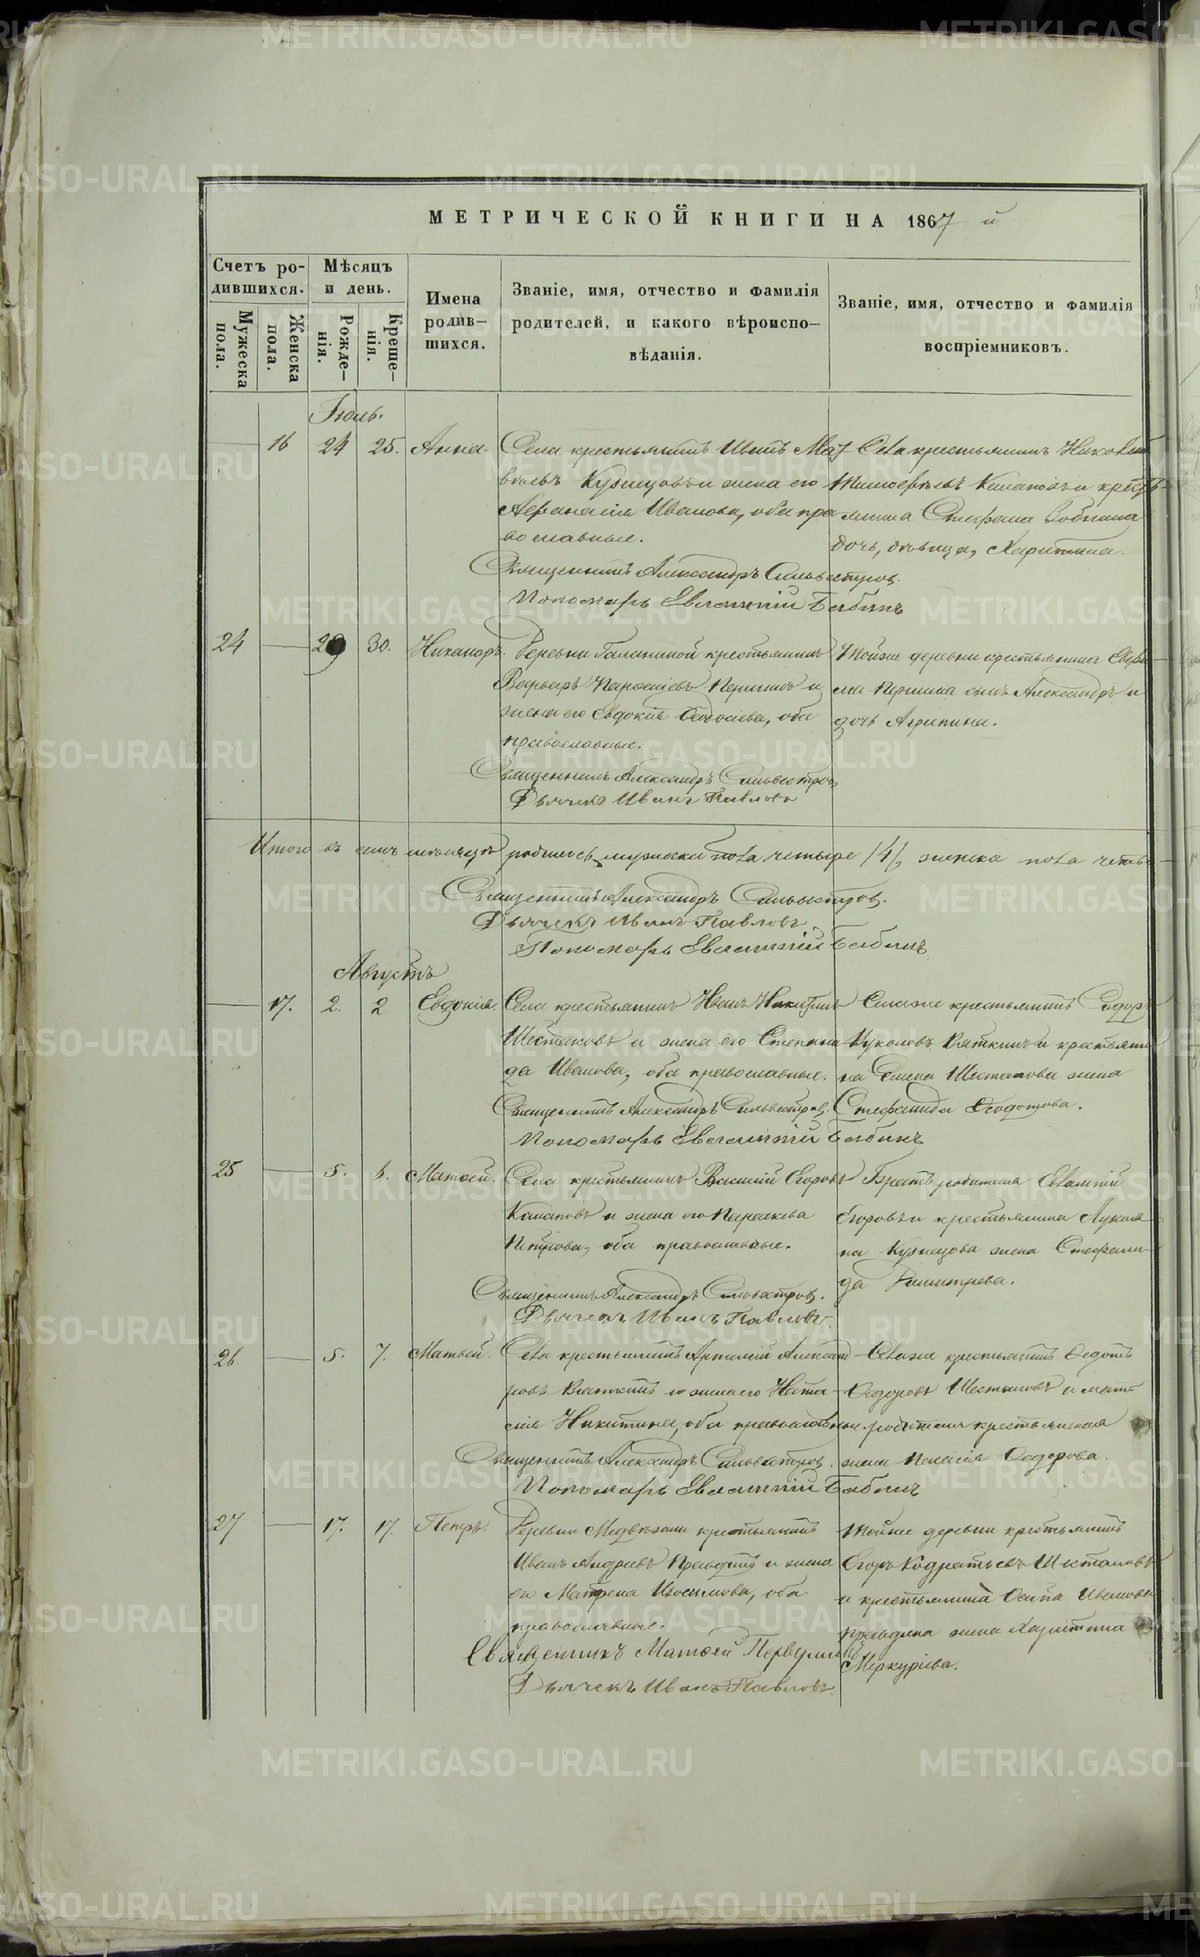 МЕТРИЧЕСКОЙ КНИГИ НА 1867 й
Счетъ ро-
дившихся.
Мѣсяцъ
и день.
Имена
родив-
шихся.
Званіе, имя, отчество и фамилія
родителей, и какого вѣроиспо-
вѣданія.
Званіе, имя, отчество и фамилія
воспріемниковъ.
Мужеска
пола.
Женска
пола.
Рожде-
нія.
Креще-
нія.
Іюль.
16 24 25. Анна.
Села крестьянинъ Иванъ Мат-
вѣевъ Кузнецовъ и жена его
Афанасія Иванова, оба пра-
вославные.
Села крестьянинъ Николай
и крестья-
нина Стефана
дочь, дѣвица, Харитина.
Священникъ Александръ Сильвестровъ.
Пономарь Евлампій Бабинъ
24 29 30. Никаноръ.
Деревни Галаниной крестьянинъ
и
жена его Евдокія Ѳедосіева, оба
православные.
Тойже деревни крестьянина
сынъ Александръ и
дочь Агрипина.
Священникъ Александръ Сильвестровъ
Дьячекъ Иванъ Павловъ
Итого въ семъ мѣсяцѣ родилось мужеска пола четыре /4/, женска пола четы-
Священникъ Александръ Сильвестровъ.
Дьячекъ Иванъ Павловъ
Пономарь Евлампій Бабинъ
Августъ
17. 2. 2 Евдокія.
Села крестьянинъ Иванъ Никитинъ
Шестаковъ и жена его Степани-
да Иванова, оба православные.
Селаже крестьянинъ Сидоръ
Вяткинъ и крестьяни-
на Семена Шестакова жена
Стефанида Ѳедотова.
Священникъ Александръ Сильвестровъ.
Пономарь Евлампій Бабинъ
25 5. 6. Матѳей.
Села крестьянинъ Василій Егоровъ
и жена его Параскева
Петрова, оба православные.
Братъ родителя Евлампій
Егоровъ и крестьянина Лукоя-
на Кузнецова жена Стефани-
да Димитрева.
Священникъ Александръ Сильвестровъ.
Дьячекъ Иванъ Павловъ.
26 5. 7. Матвей.
Села крестьянинъ Артемій Александ-
ровъ Вяткинъ и жена его Ната-
лія Никитина, оба православные.
Селаже крестьянинъ Ѳедотъ
Ѳедоровъ Шестаковъ и мать
родителя крестьянская
жена Пелагія Ѳедорова.
Священникъ Александръ Сильвестровъ.
Пономарь Евлампій Бабинъ
27 17. 17. Петръ.
Деревни крестьянинъ
Иванъ Андреевъ Правдинъ и жена
его Матрена Изосимова, оба
православные.
Тойже деревни крестьянинъ
Егоръ Кодратьевъ Шестаковъ
и крестьянина Осипа Иванова
Правдина жена Харитина
Меркуріева.
Священникъ Матѳей Первушинъ
Дьячекъ Иванъ Павловъ.
METRIKI.GASO-URAL.RU